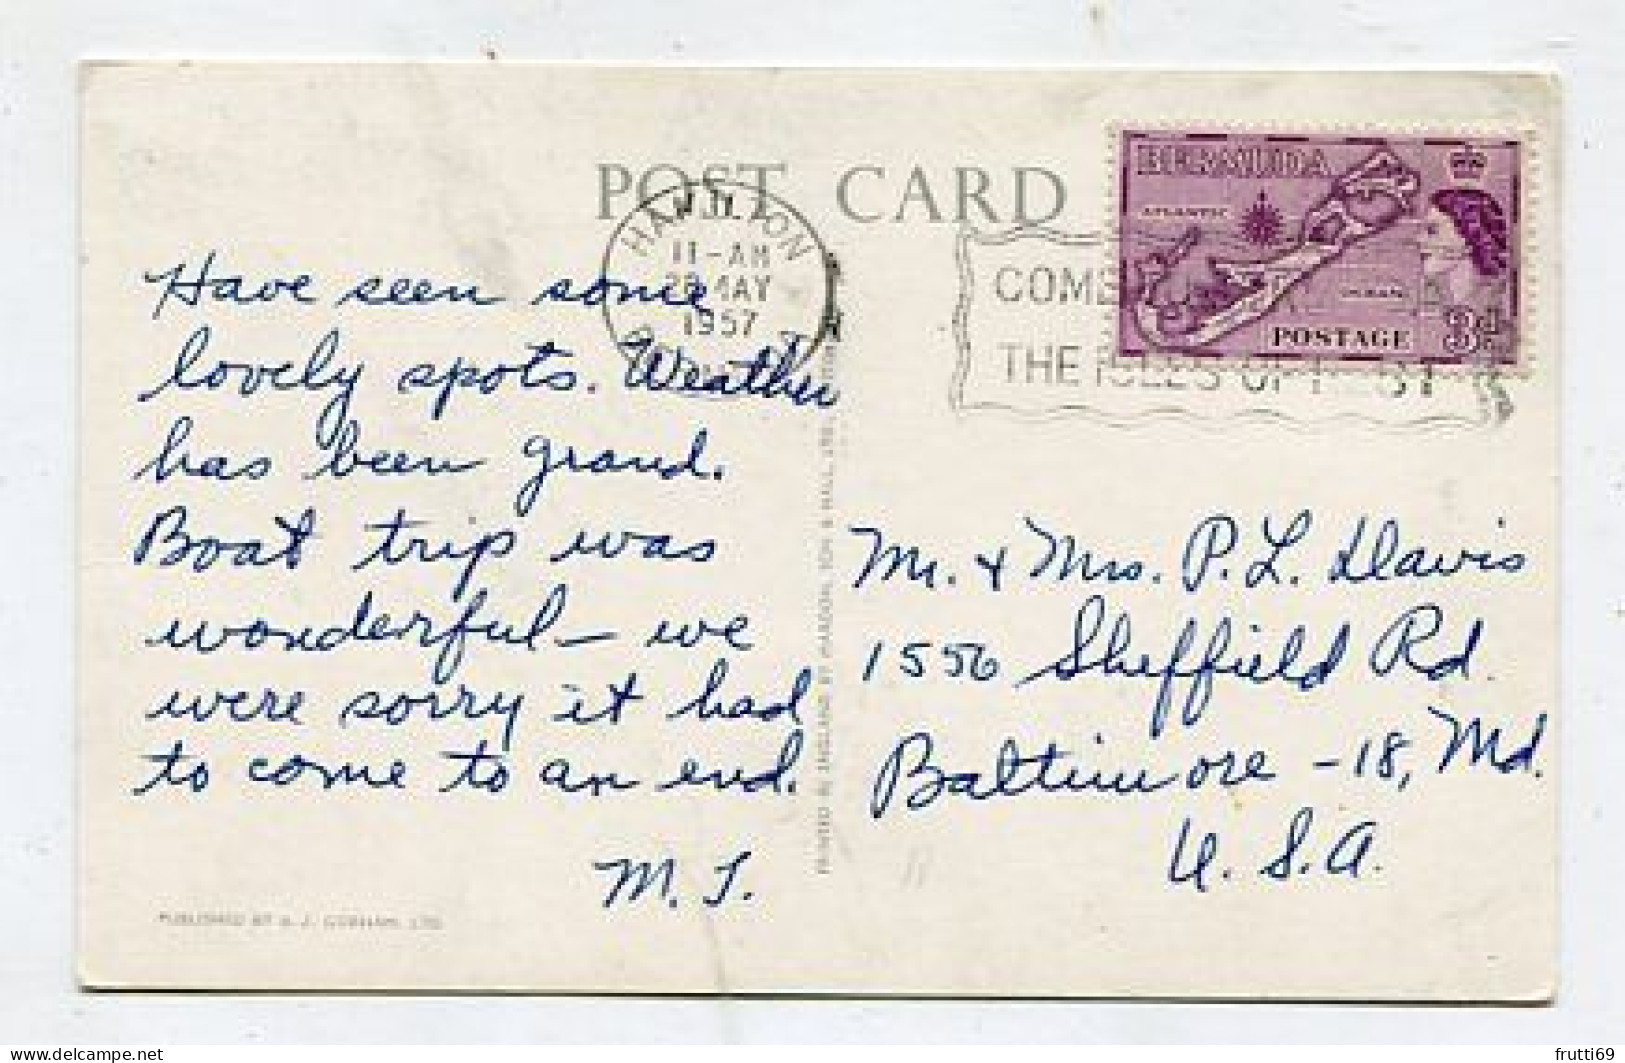 POST CARD
HAMILTON
11-AM
28 MAY
1957
BERMUDA
ATLANTIC
OCEAN
POSTAGE
3d
COME
THE ISLES OF REST
Have seen some
lovely spots. Weather
has been grand.
Boat trip was
wonderful – we
were sorry it had
to come to an end.
M. T.
Mr. & Mrs. P. L. Davis
1556 Sheffield Rd.
Baltimore - 18, Md.
U. S. A.
PRINTED IN ENGLAND BY MARDON, SON & HALL, LTD.,
PUBLISHED BY A. J. GORHAM, LTD.
frutti69